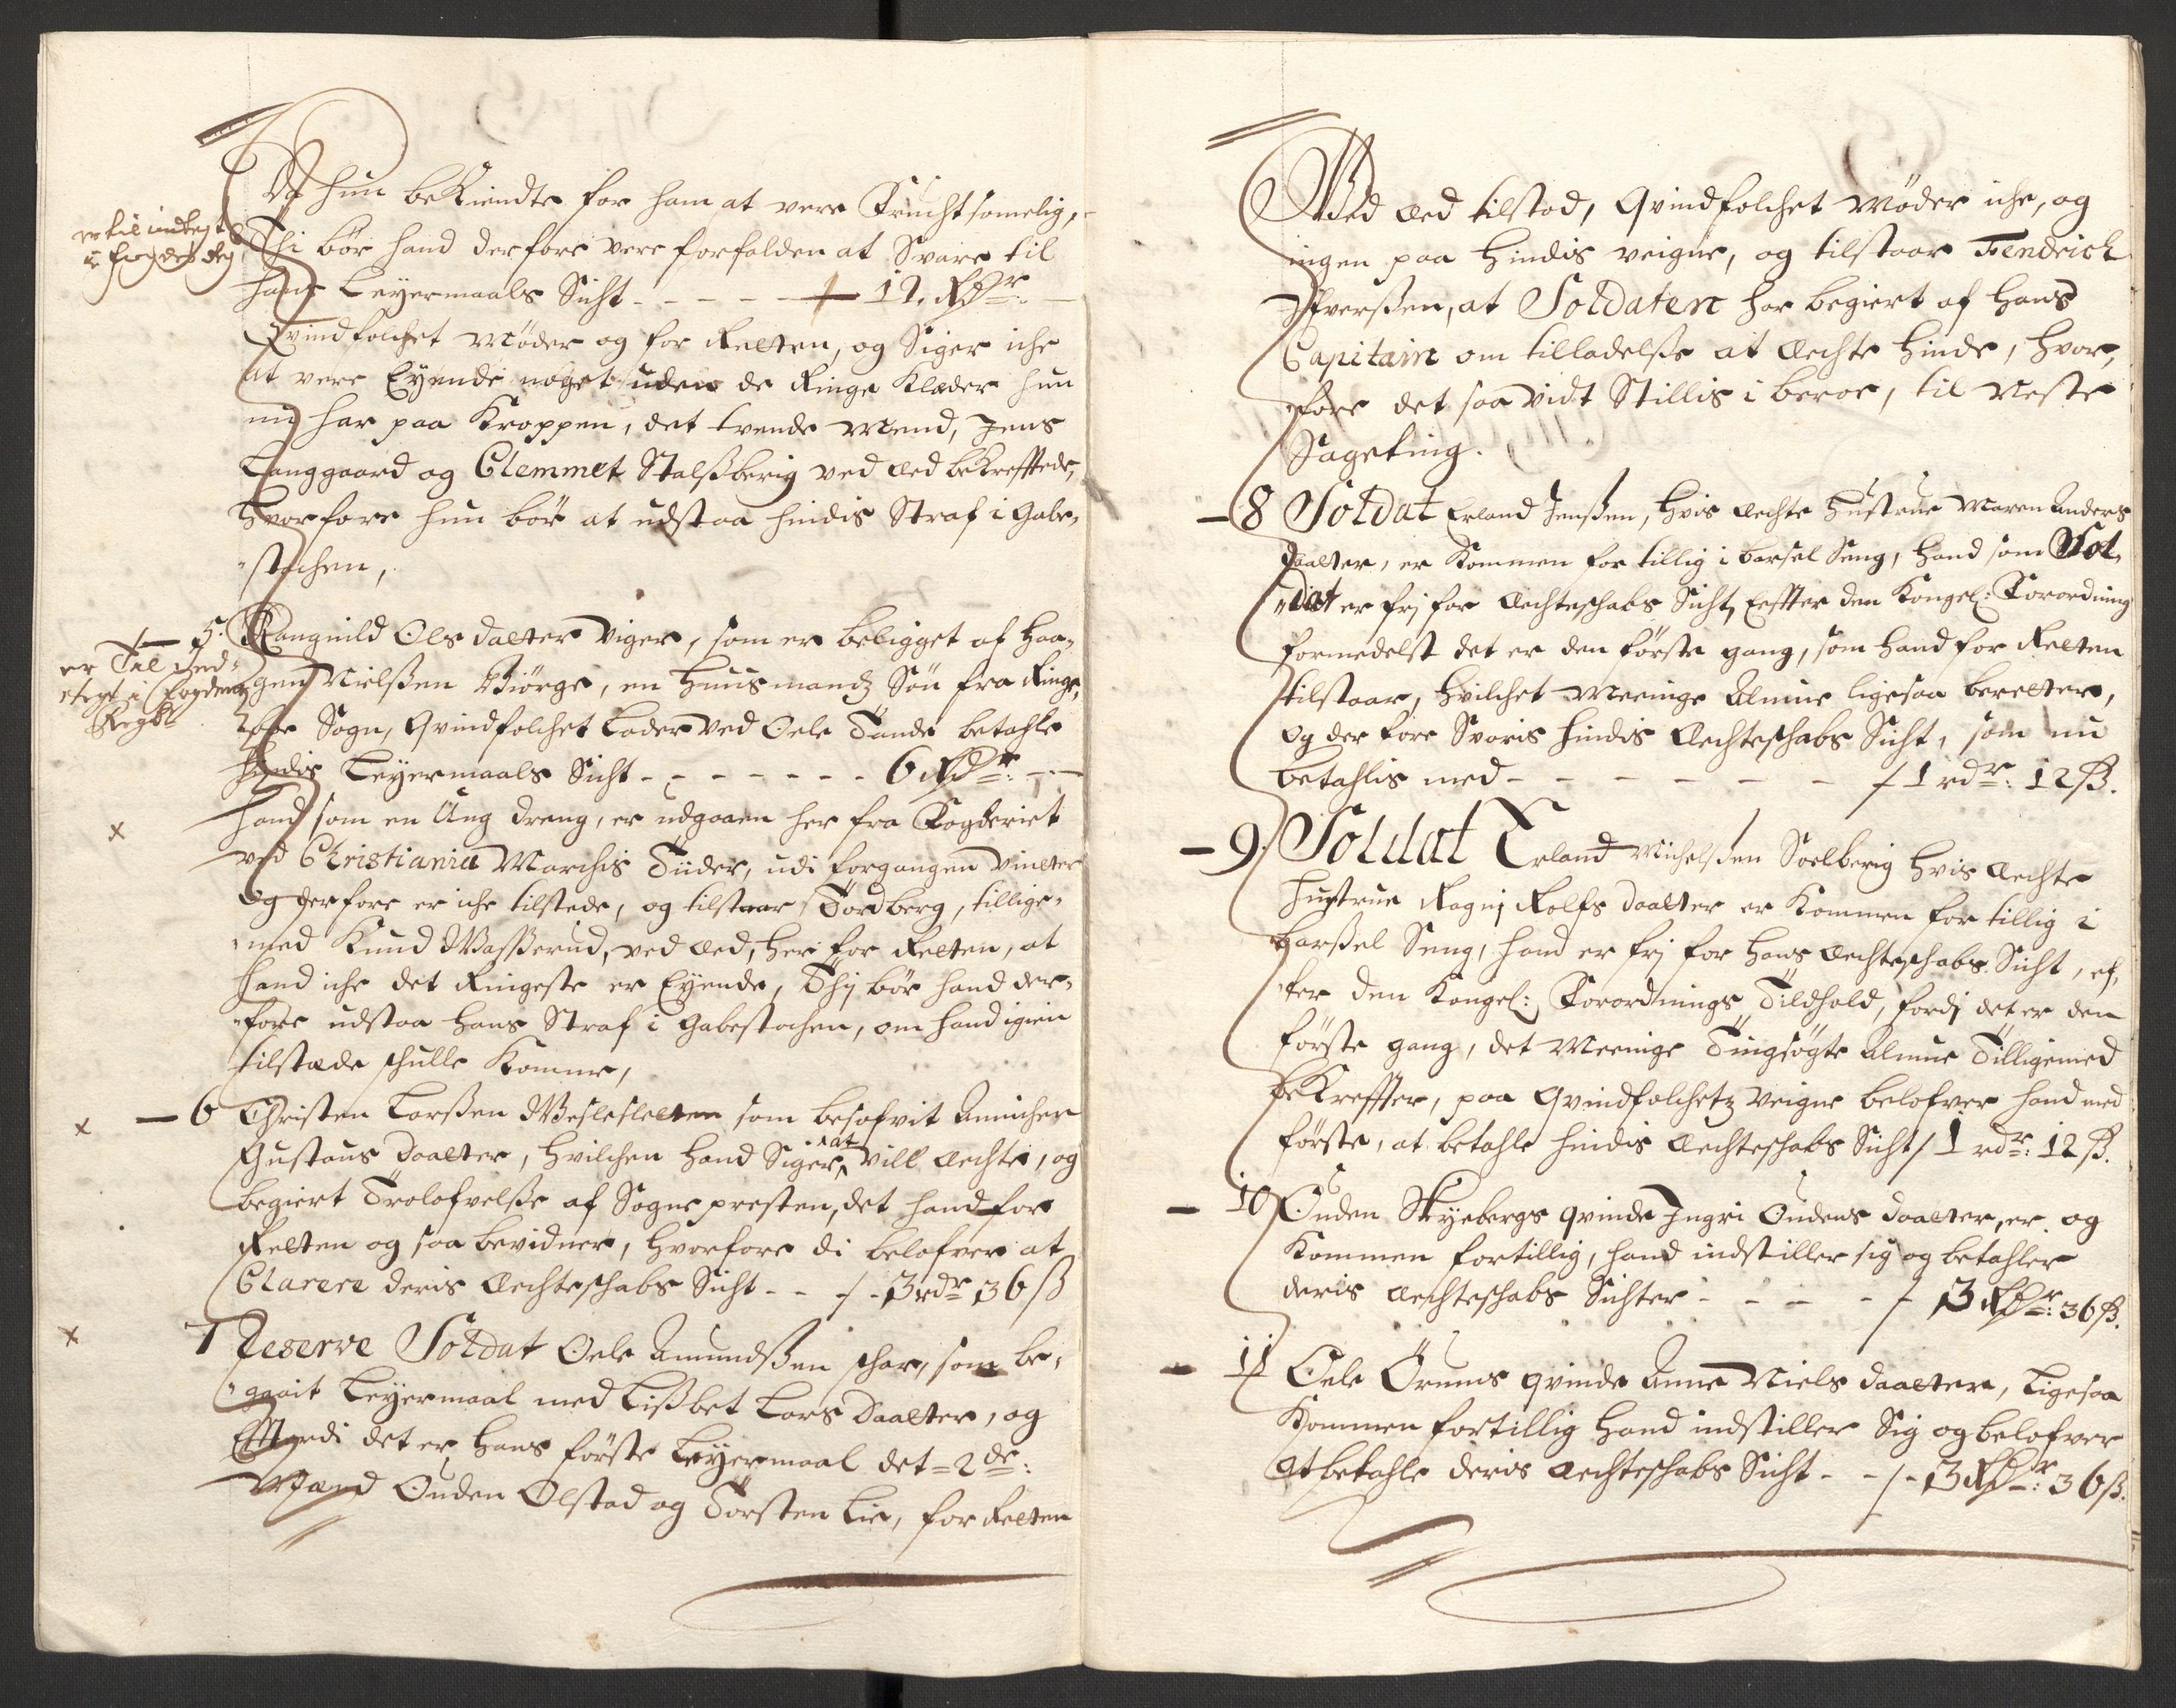 Da hun bekiendte for ham at vere Fruchtsomelig,
Thi bör hand derfore vere forfalden at Svare til
hans Leyermaals Sicht - - - - - 12. Rdr:
Qvindfolchet Möder og for Retten, og Siger iche
at vere Eyende noget uden de Ringe Klæder hun
nu har paa Kroppen, det tvende Mend, Jens
Langgaard og Clemmet Stalßberig ved æed bekrefftede,
Hvorfore hun bör at udstaa hindis Straf i Gabe-
stochen,
er til indtegt
i fogdens Reg
5. Rangnild Ols daatter Viger, som er beligget af Haa-
gen Nielßen Biörge, en Huusmands Sön fra Ringe,
er Til Ind-
tegt i Fogdens
Regst
Sogn, Qvindfolchet Lader ved Oele Sande betahle
hindis Leyermaals Sicht - - - - - - - 6 Rdr:
hand som en Ung dreng, er udgaaen her fra Fogderiet
ved Christiania Marchis Tiider, udi forgangen Vinter
og derfore er iche tilstede, og tilstaar Tordberg, tillige-
med Knud Waßerud, ved æed, her for Retten, at
hand iche det Ringeste er Eyende, Thj bör hand der-
fore udstaa hans Straf i Gabestochen, om hand igien
tilstæde schulle Komme,
6 Christen Larßen Weslesletten som besofvit Annichen
Gustaus daatter, hvilchen hand Siger at vill æchte, og
begiert Trolofvelße af Sogne presten, det hand for
Retten og saa bevidner, hvorfore di belofver at
Clarere deris æchteschabs Sicht - - - 3 rdr 36 ß
7 Reserve Soldat Oele Amundßen schar, som be-
gaait Leyermaal med Lißbet Lars Daatter, og
Efterdi det er hans förste Leyermaal det = 2de:
Mænd Ouden Olstad og Torsten Lie, for Retten
Ved æed tilstod, Qvindfolchet Möder iche, og
ingen paa hindis veigne, og tilstaar Fendrich
Ifverßen, at Soldaten har begiert af hans
Capitain om tilladelße at æchte hinde, hvor,
fore det saa vidt Stillis i beroe, til Neste
Sageting.
8 Soldat Erland Jenßen, hvis æchte Hustrue Maren Anders
daatter, er Kommen for tillig i barsel Seng, hand som Sol,
dat er frj for æchteschabs Sicht, Effter den Kongel: Forordning
formedelst det er den förste gang, som hand for Retten
tilstaar, hvilchet Meenige Almue ligesaa beretter,
og der fore Svaris hindis Æchteschabs Sicht, som nu
betahlis med - - - - - - - 1 rdr: 12 ß.
9. Soldat Erland Michelsßen Soelberig hvis æchte
Hustrue Ragnj Rolfs Daatter er Kommen for tillig i
Barßel Seng, hand er frj for hans æchteschabs Sicht, ef,
ter den Kongel: Forordnings Tildhold, fordj det er den
förste gang, det Meenige Tingsögte Almue Tilligemed
bekreffter, paa Qvindfolchetz veigne belofver hand med
förste, at betahle hindis æchteschabs Sicht / 1 rdr: 12 ß.
10 Ouden Skyebergs qvinde Ingri Oudens daatter, er og
Kommen fortillig, hand indstiller sig og betahler
deris æchteschabs Sichter - - - - - 3 Rdr: 36 ß.
11 Oele Örums qvinde Anne Niels daatter, Ligesaa
Kommen fortillig hand indstiller Sig og belofver
at betahle deris æchteschabs Sicht - - / - 3 Rdr: 36 ß.